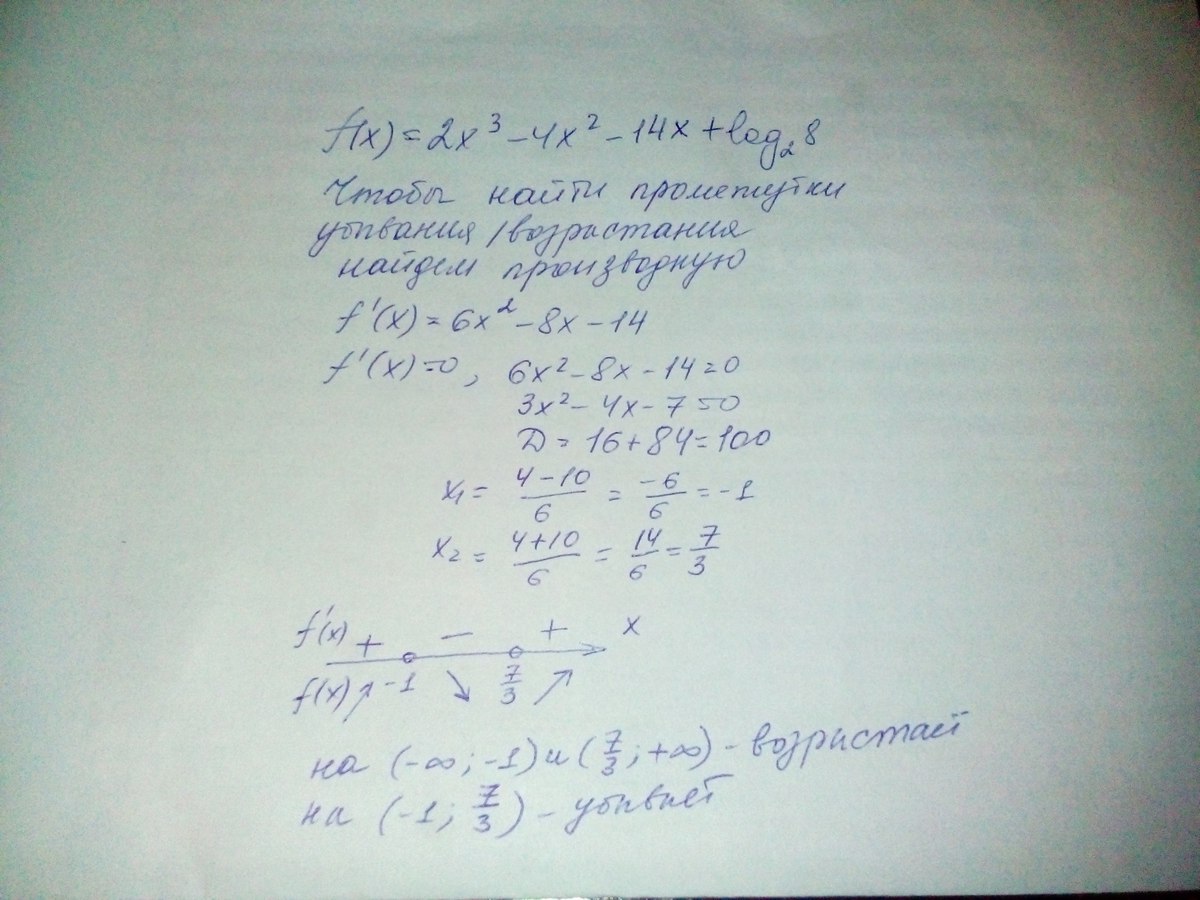 f(x) = 2x³ - 4x² - 14x + log₂ 8
Чтобы найти промежутки
убывания / возристания
найдем производную
f'(x) = 6x² - 8x - 14
f'(x) = 0, 6x² - 8x - 14 = 0
3x² - 4x - 7 = 0
D = 16 + 84 = 100
x₁ = (4 - 10)/6 = -6/6 = -1
x₂ = (4 + 10)/6 = 14/6 = 7/3
f'(x) + - + x
f(x) ↗ -1 ↘ 7/3 ↗
на (-∞; -1) и (7/3; +∞) - возристает
на (-1; 7/3) - убывает